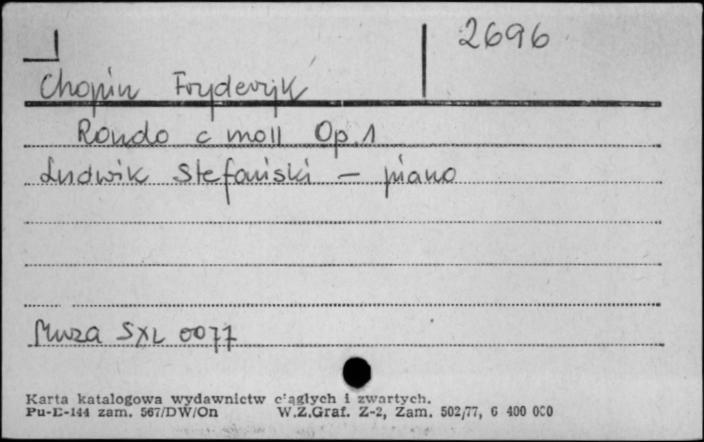 2696
Chopin Fryderyk
Rondo c moll Op. 1
Ludwik Stefański — piano
Muza SXL 0077
Karta katalogowa wydawnictw ciągłych i zwartych.
Pu-E-144 zam. 567/DW/On W.Z.Graf. Z-2, Zam. 502/77, 6 400 000